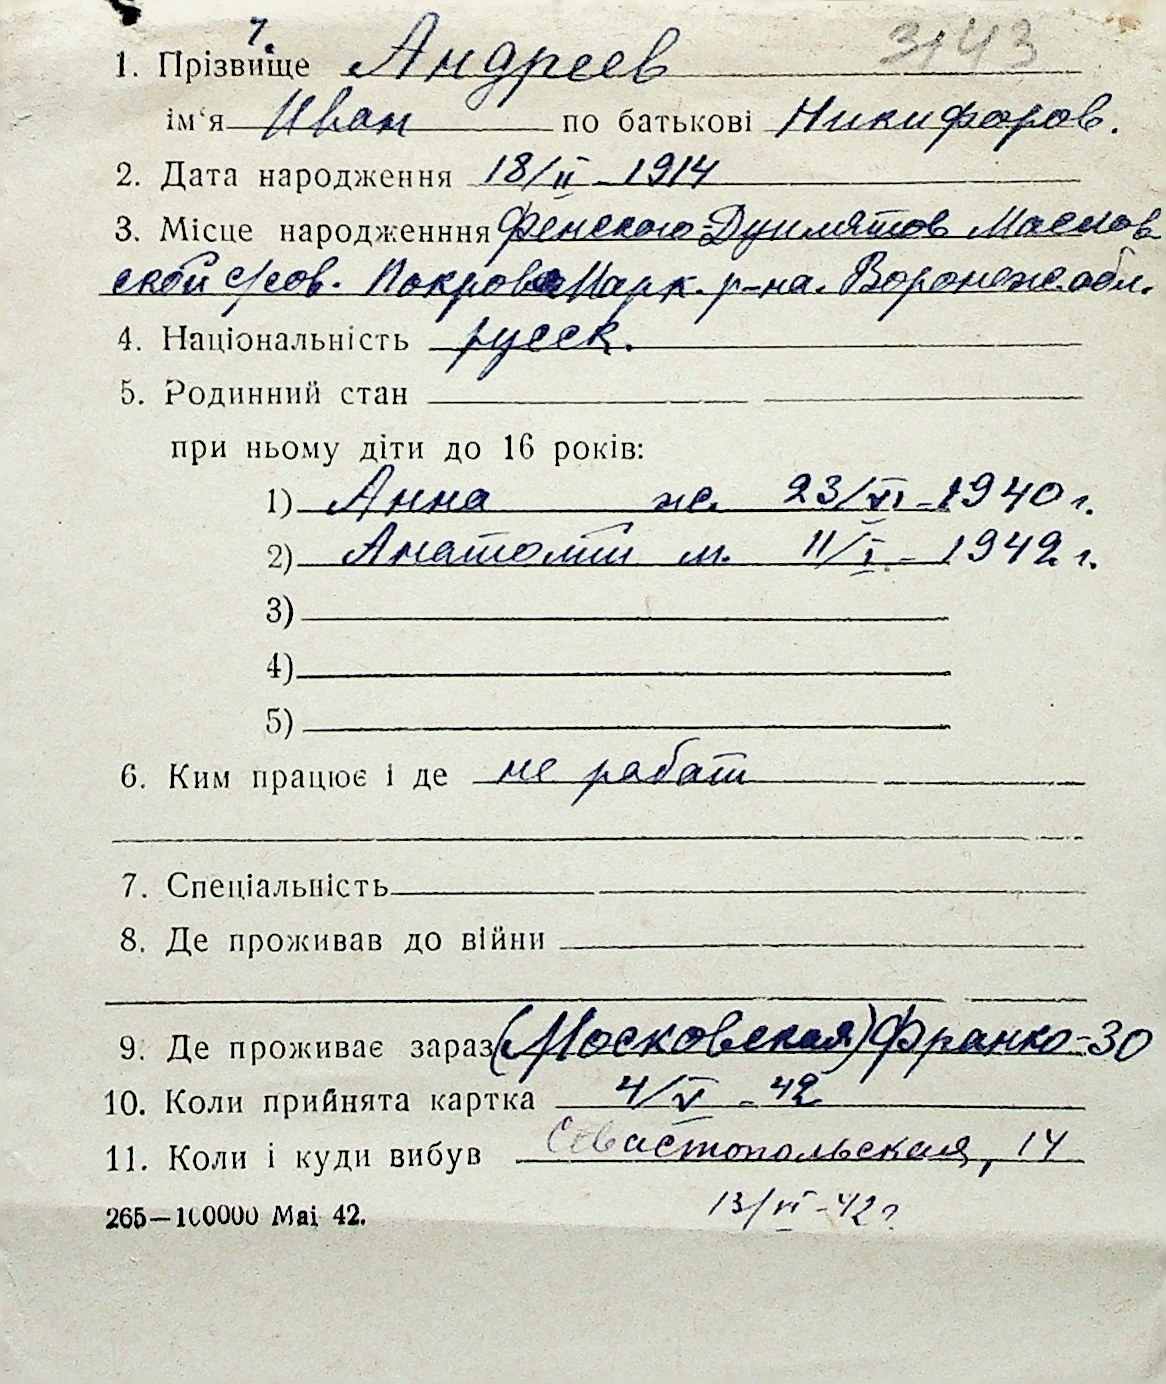 7.
3143
1. Прізвище Андреев
ім'я Иван по батькові Никифоров.
2. Дата народження 18/II - 1914
3. Місце народженння Маслов
ской с/сов. Покрово Марк. р-на. Воронеж. обл.
4. Національність русск.
5. Родинний стан
при ньому діти до 16 років:
1) Анна ж. 23/VI - 1940 г.
2) Анатолий м. 11/I - 1942 г.
3)
4)
5)
6. Ким працює і де не работ
7. Спеціальність
8. Де проживав до війни
9. Де проживає зараз (Московская) Франко-30
10. Коли прийнята картка 4/V - 42
11. Коли і куди вибув Севастопольская, 14
13/VI - 42 г
265—100000 Маі 42.